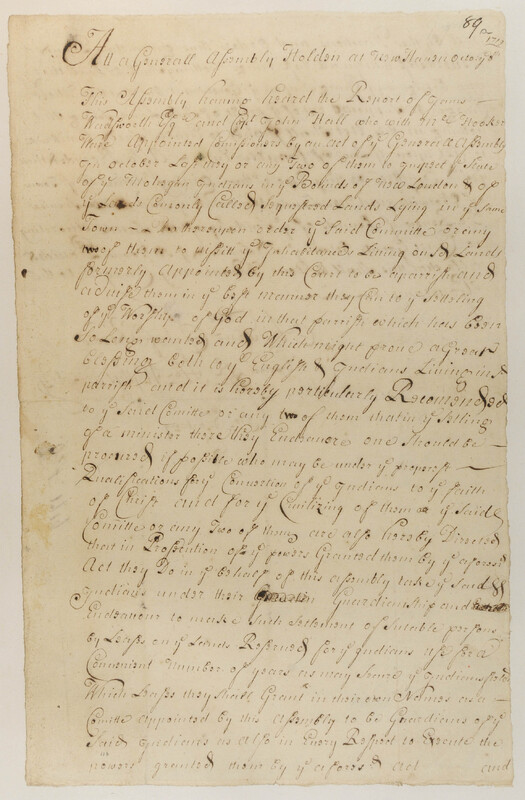 89
1719
Att a Generall Assembly Holden at New Haven
This Assembly having heard the Report of James
Wadsworth Esqr and Capt John Hall who with Mr Hooker
Were Appointed Comissioners by an act of ye Generall Assembly
in october Last they or any Two of them to inspect ye State
of ye Moheghn Indians in ye Bounds of New London & of
ye Lands Comonly Called Sequestred Lands Lying in ye Same
Town - Do thereupon order ye Said Committe or any
two of them to vissitt ye Inhabitance Living on sd Lands
formerly Appointed by this Court to be a parrish and
advise them in ye best manner they Can to ye Settling
of ye Worship of God in that parrish which has been
So Long wanted and Which might prove a Great
blessing both to ye English & Indians Living in sd
parrish and it is hereby particularly Recomended
to ye Said Comitte or any two of them that in ye Settling
of a minister there they Endeavore one Should be
procured if possible who may be under ye properest
Qualifications for ye Convertion of ye Indians to ye faith
of Christ and for ye Civilizing of them ye Said
Comitte or any Two of them are also hereby Directed
that in Prossecution of ye powers Granted them by ye aforesd
Act they Do in ye behalf of this assembly take ye Said
Indians under their Guardianship and
Endeavour to make Such Settlement of Sutable persons
by Leases on ye Lands Reserved for ye Indians use for a
Convenient number of years as may Secure ye Indians
Which Leases they Shall Grant in their own Names as a
Comitte appointed by this Assembly to be Guardians of ye
Said Indians as also in Every Respect to Execute the
powers granted them by ye aforesd act and